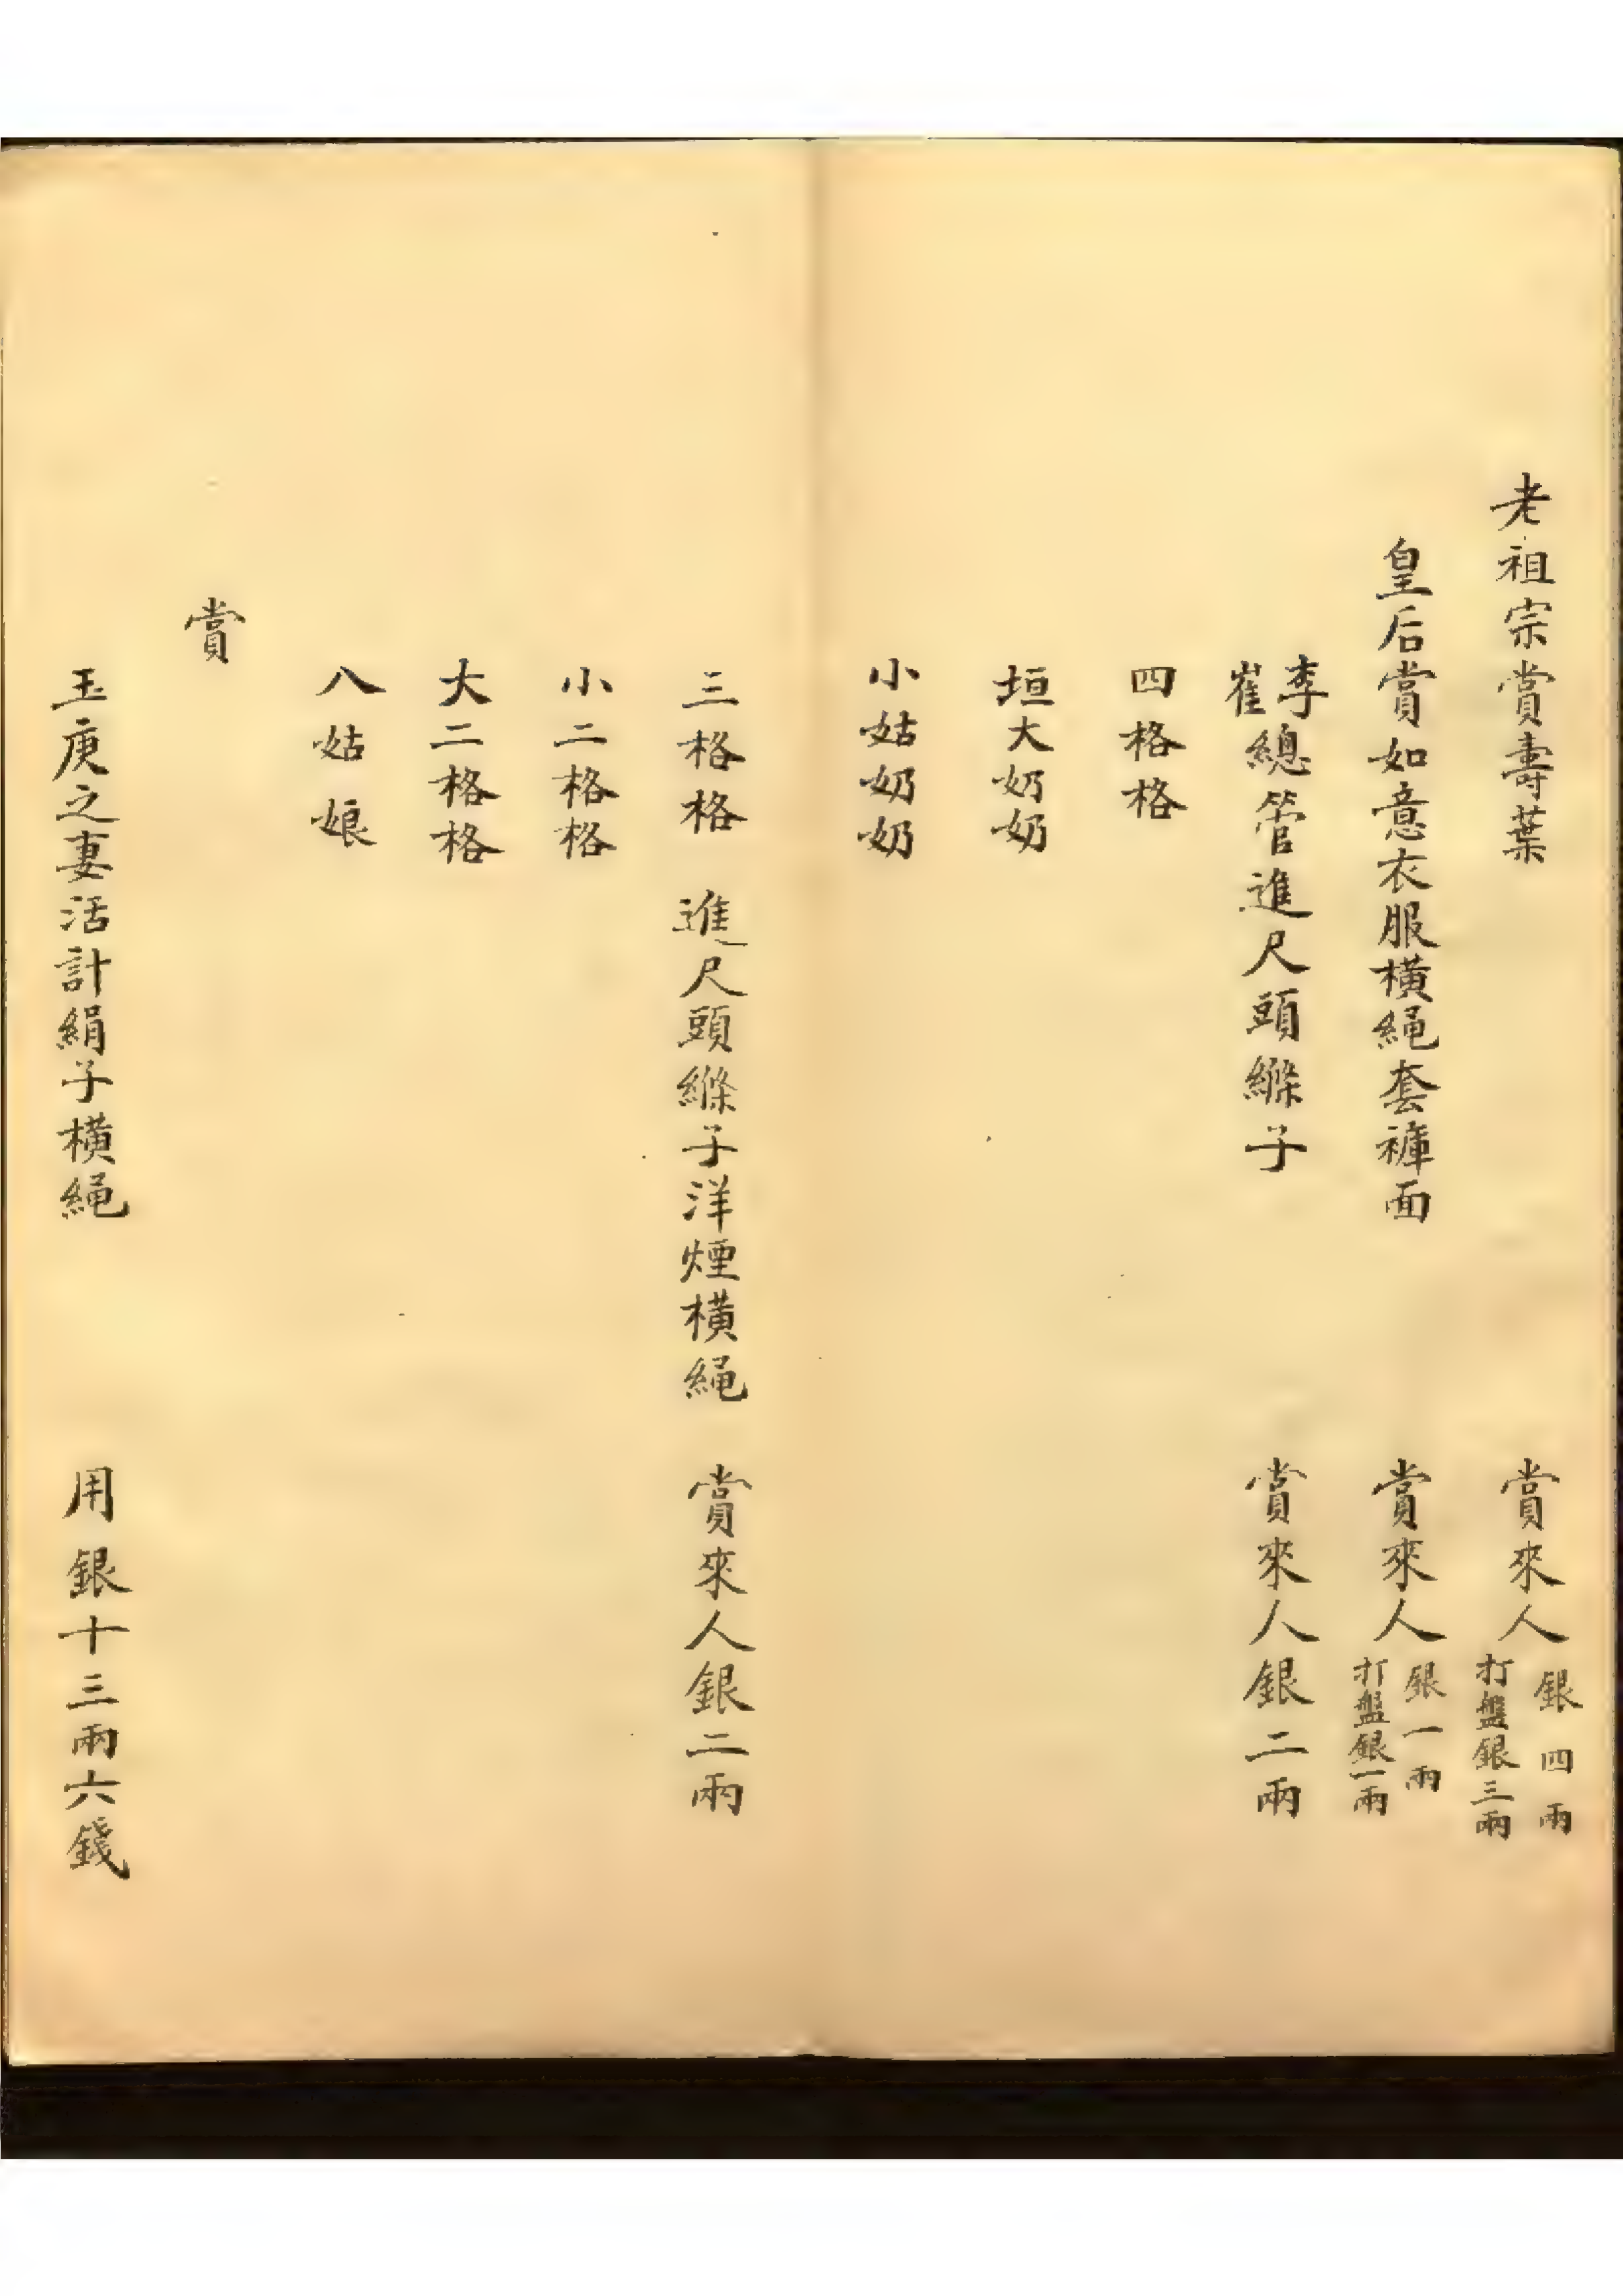 老祖宗賞壽葉 賞來人銀四兩打盤銀三兩
皇后賞如意衣服橫繩套褲面 賞來人銀一兩打盤銀一兩
李崔總管進尺頭縧子 賞來人銀二兩
四格格
垣大奶奶
小姑奶奶
三格格 進尺頭縧子洋煙橫繩 賞來人銀二兩
小二格格
大二格格
八姑娘
賞
玉庚之妻活計絹子橫繩 用銀十三兩六錢